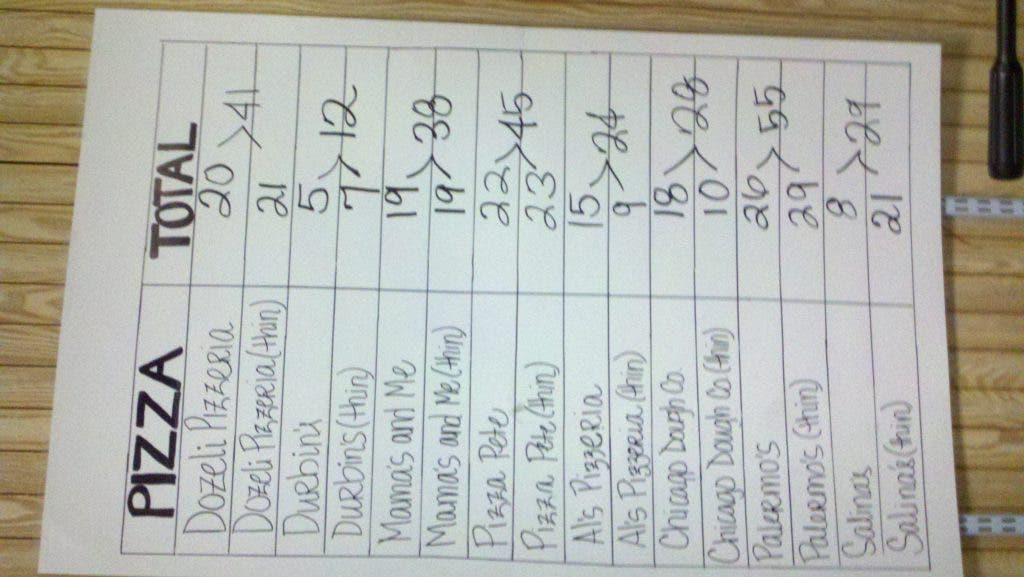 PIZZA TOTAL
Dozeli Pizzeria 20
>41
Dozeli Pizzeria (thin) 21
Durbin's 5
>12
Durbins (thin) 7
Mama's and Me 19
>38
Mama's and Me (thin) 19
Pizza Pete 22
>45
Pizza Pete (thin) 23
Al's Pizzeria 15
>24
Al's Pizzeria (thin) 9
Chicago Dough Co. 18
>28
Chicago Dough Co (thin) 10
Palermo's 26
>55
Palermo's (thin) 29
Salinas 8
>29
Salina's (thin) 21